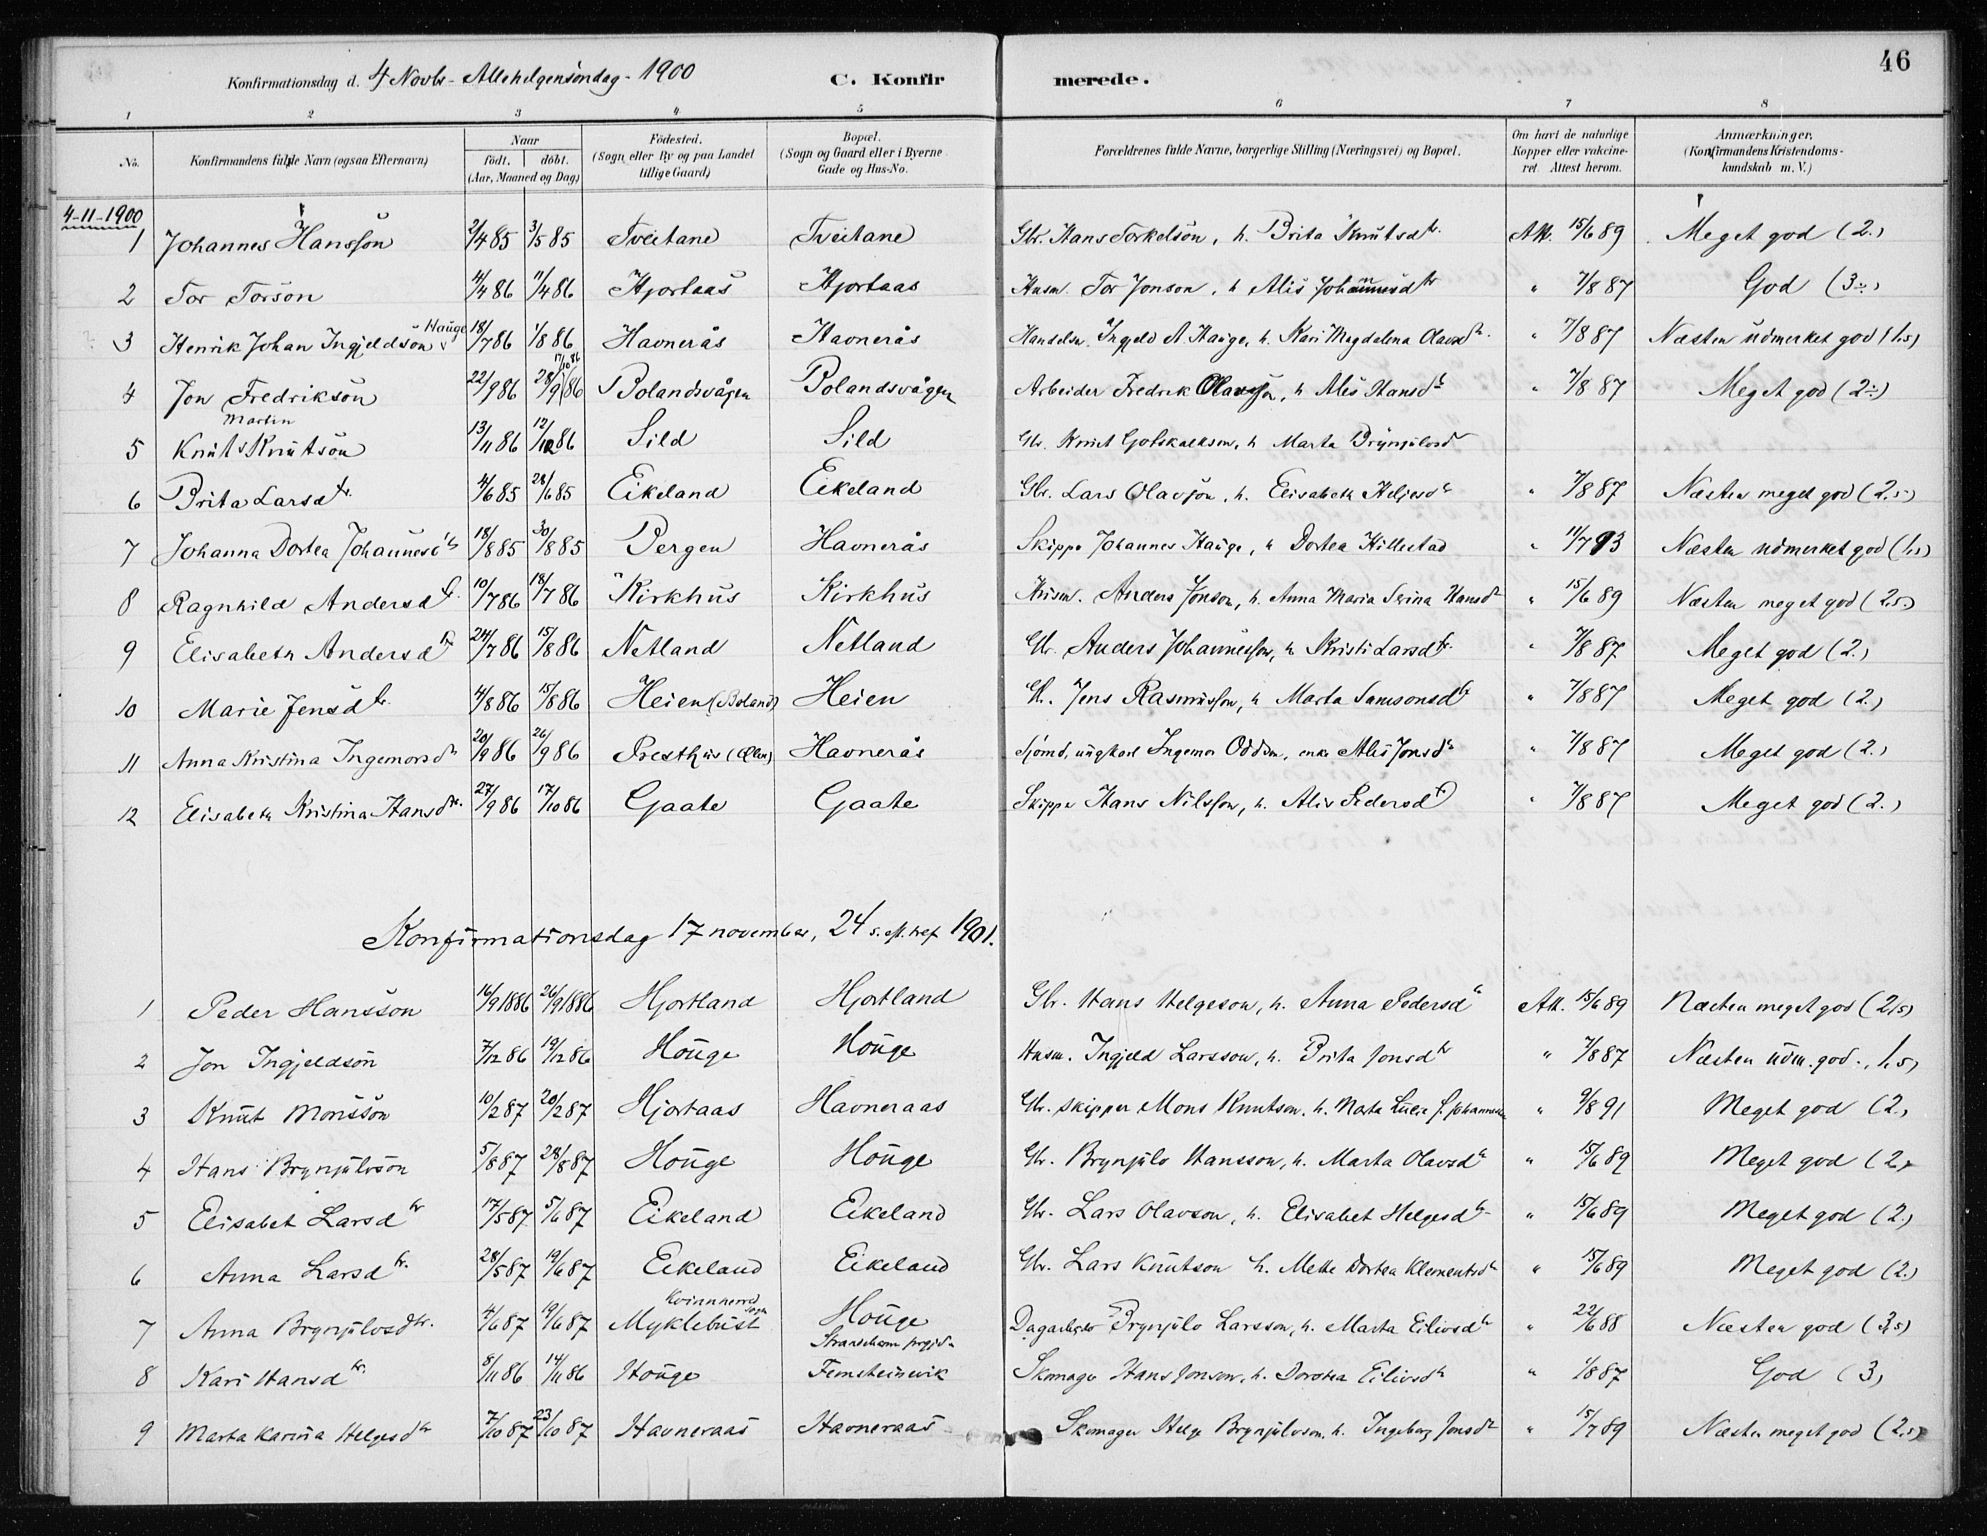 46
Konfirmationsdag d. 4 Novbr - Allehelgensöndag - 1900 C. Konfirmerede.
1 2 3 4 5 6 7 8
No. Konfirmandens fulde Navn (ogsaa Efternavn) Naar født. døbt. (Aar, Maaned og Dag) Fødested. (Sogn eller By og paa Landet tillige Gaard) Bopæl. (Sogn og Gaard eller i Byerne Gade og Hus-No. Forældrenes fulde Navne, borgerlige Stilling (Næringsvei) og Bopæl. Om havt de naturlige Kopper eller vakcineret. Attest herom. Anmærkninger. (Konfirmandens Kristendomskundskab m. V.)
4-11-1900
1 Johannes Hansson 2/4 85 3/5 85 Tveitane Tveitane Gbr. Hans Torkelsön, h. Brita Knutsdtr. Att. 15/6 89 Meget god (2.)
2 Tor Torson 4/4 86 11/4 86 Hjortaas Hjortaas Husm. Tor Jonson, h. Alis Johannesdtr " 7/8 87 God (3.)
3 Henrik Johan Ingjeldsön Hauge 18/7 86 1/8 86 Havnerås Havnerås Handelsm. Ingjeld A Hauge, h. Kari Magdalena Olavsdtr. " 7/8 87 Næsten udmerket god (1,5)
4 Jon Fredriksön 22/9 86 28/9 86 17/10 86 Bolandsvågen Bolandsvågen Arbeider Fredrik Olavsson, h. Alis Hansdtr " 7/8 87 Meget god (2.)
5 Knut Martin Knutsön 13/11 86 12/12 86 Sild Sild Gbr. Knut Gotskalksen, h. Marta Brynjulvsdtr
6 Brita Larsdtr. 4/6 85 28/6 85 Eikeland Eikeland Gbr. Lars Olavson, h. Elisabeth Heljesdtr " 7/8 87 Næsten meget god (2,5)
7 Johanna Dortea Johannesdtr 18/8 85 30/8 85 Bergen Havnerås Skipper Johannes Hauge, h Dortea Hillestad " 11/7 93 Næsten udmerket god (1,5)
8 Ragnhild Andersdtr. 10/7 86 18/7 86 Kirkhus Kirkhus Husm. Anders Jonson, h. Anna Maria Serina Hansdtr " 15/6 89 Næsten meget god (2,5)
9 Elisabeth Andersdtr 24/7 86 15/8 86 Netland Netland Gbr. Anders Johannesson, h Kristi Larsdtr. " 7/8 87 Meget god (2.)
10 Marie Jensdtr. 4/8 86 15/8 86 Heien (Boland) Heien Gbr. Jens Rasmusson, h Marta Samsonsdtr " 7/8 87 Meget god (2.)
11 Anna Kristina Ingemorsdtr 20/9 86 26/9 86 Presthus (Ølen) Havnerås Sjömd, ungkarl Ingemor Oddsen, enke Alis Jonsdtr " 7/8 87 Meget god (2.)
12 Elisabeth Kristina Hansdtr. 27/9 86 17/10 86 Gaate Gaate Skipper Hans Nilsson, h. Alis Pedersdtr " 7/8 87 Meget god (2.)
Konfirmationsdag 17 november, 24 s. eft. tref 1901.
1 Peder Hansson 16/9 1886 26/9 1886 Hjortland Hjortland Gbr. Hans Helgeson, h. Anna Pedersdtr Att. 15/6 89 Næsten meget god (2,5)
2 Jon Ingjeldsön 7/12 86 19/12 86 Houge Houge Husm. Ingjeld Larsson, h. Brita Jonsdtr " 7/8 87 Næsten udm. god., 1,5)
3 Knut Monsson 10/2 87 20/2 87 Hjortaas Havneraas Gbr. skipper Mons Knutson, h. Marta Lucia f. Johannesen " 9/8 91 Meget god (2.)
4 Hans Brynjulvson 5/8 87 28/8 87 Houge Houge Gbr. Brynjulv Hansson, h. Marta Olavsdtr " 15/6 89 Meget god (2.)
5 Elisabet Larsdtr 17/5 87 5/6 87 Eikeland Eikeland Gbr. Lars Olavson, h. Elisabet Helgesdtr " 15/6 89 Meget god (2.)
6 Anna Larsdtr. 28/5 87 19/6 87 Eikeland Eikeland Gbr. Lars Knutson h. Mette Dortea Klementsdtr " 15/6 89 Meget god (2.)
7 Anna Brynjulvsdtr. 4/6 87 19/6 87 Kvinnherred sogn Myklebust Houge Dagarbeider Brynjulv Larsson, h. Marta Eilivsdtr " 22/6 88 Næsten god (3,5)
8 Kari Hansdtr. 8/11 86 14/11 86 Houge Femsteinevik Skomager Hans Jonson, h. Dorotea Eilivsdtr " 1/8 87 God (3)
9 Marta Karina Helgesdtr 7/10 87 23/10 87 Havneraas Havneraas Skomager Helge Brynjulvson, h. Ingeborg Jonsdtr " 15/7 89 Næsten meget god (2,5)